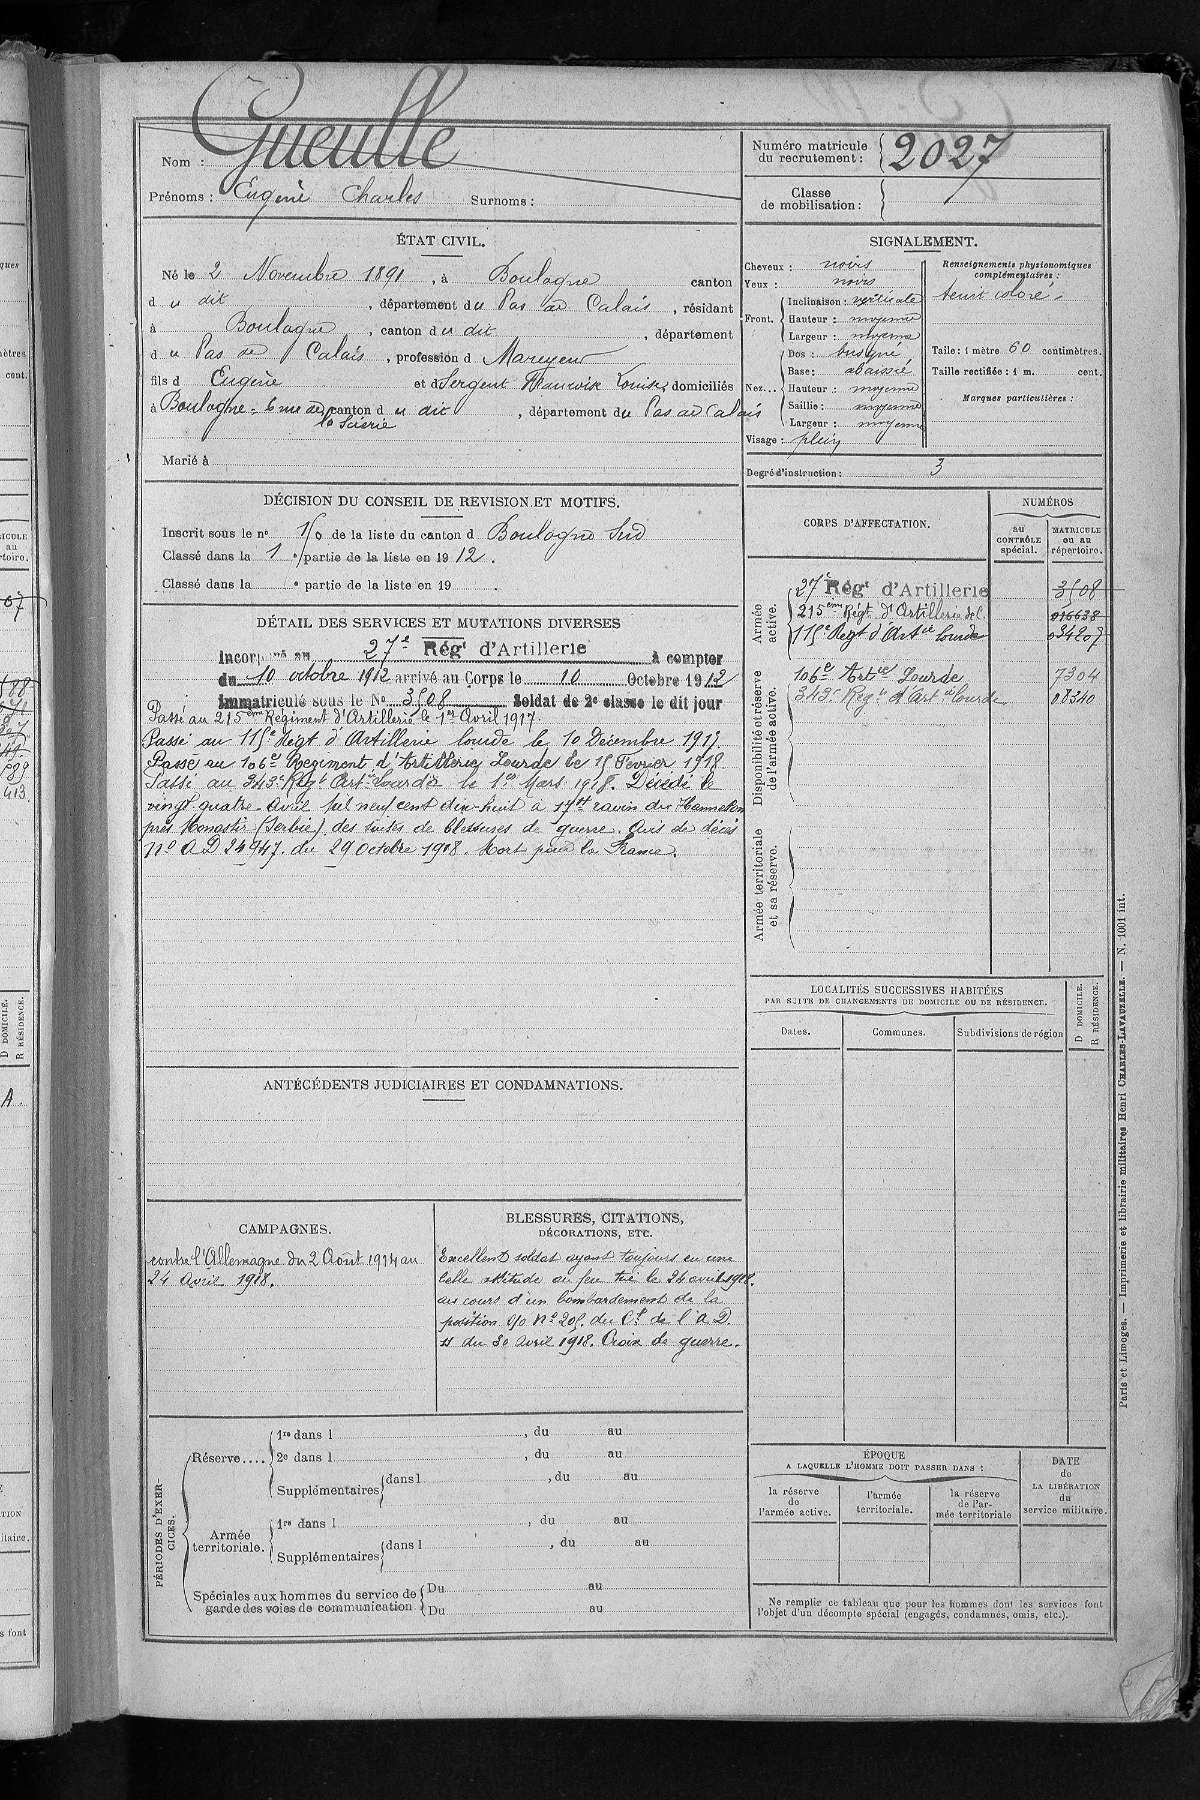 Nom : Gueulle
Prénoms : Eugène Charles Surnoms :
Numéro matricule du recrutement : 2027
Classe de mobilisation :
ÉTAT CIVIL.
Né le 2 Novembre 1891, à Boulogne canton
du dit, département du Pas de Calais, résidant
à Boulogne, canton du dit, département
du Pas de Calais, profession d Mareyeur
fils d Eugène et d Sergent Françoise Louise domiciliés
à Boulogne - 6 rue de la Scierie canton du dit, département du Pas de Calais
Marié à
SIGNALEMENT.
Cheveux : noirs
Yeux : noirs
Front. Inclinaison : verticale
Hauteur : moyenne
Largeur : moyenne
Nez... Dos : busqué
Base : abaissé
Hauteur : moyenne
Saillie : moyenne
Largeur : moyenne
Visage : plein
Renseignements physionomiques complémentaires :
teint coloré
Taille : 1 mètre 60 centimètres.
Taille rectifiée : 1 m. cent.
Marques particulières :
Degré d'instruction : 3
DÉCISION DU CONSEIL DE REVISION ET MOTIFS.
Inscrit sous le n° de la liste du canton d Boulogne Sud
Classé dans la 1e partie de la liste en 1912.
Classé dans la e partie de la liste en 19
DÉTAIL DES SERVICES ET MUTATIONS DIVERSES
Incorporé au 27e Régt d'Artillerie à compter
du 10 octobre 1912 arrivé au Corps le 10 Octobre 1912
Immatriculé sous le No 3508 Soldat de 2e classe le dit jour
Passé au 215eme Régiment d'Artillerie le 1er Avril 1917
Passé au 115e Régt d'Artillerie lourde le 10 Décembre 1917.
Passé au 106e Régiment d'Artillerie Lourde le 15 Février 1918
Passé au 343e Régt Artie Lourde le 1er Mars 1918. Décédé le
vingt quatre Avril mil neuf cent dix huit à 17H ravin du
près Monastir (Serbie) des suites de blessures de guerre. Avis de décès
No AD 24947. du 29 octobre 1918. Mort pour la France.
CORPS D'AFFECTATION.
NUMÉROS
au CONTRÔLE spécial.
MATRICULE ou au répertoire.
Armée active.
27e Régt d'Artillerie 3508
215eme Régt d'Artillerie de C. 016638
115e Regt d'Artie Lourde 034207
Disponibilité et réserve de l'armée active.
106e Artie Lourde 7304
343e Regt d'Artie Lourde 08340
Armée territoriale et sa réserve.
LOCALITÉS SUCCESSIVES HABITÉES
PAR SUITE DE CHANGEMENTS DE DOMICILE OU DE RÉSIDENCE.
Dates. Communes. Subdivisions de région D DOMICILE. R RÉSIDENCE.
ANTÉCÉDENTS JUDICIAIRES ET CONDAMNATIONS.
CAMPAGNES.
contre l'Allemagne du 2 Août 1914 au
24 Avril 1918.
BLESSURES, CITATIONS,
DÉCORATIONS, ETC.
Excellent soldat ayant toujours eu une
belle attitude au feu tué le 24 avril 1918.
au cours d'un bombardement de la
position O/o No 205. du Ct de l'A.D.
du 30 Avril 1918. Croix de guerre.
PÉRIODES D'EXERCICES.
Réserve.... 1re dans l , du au
2e dans l , du au
Supplémentaires dans l , du au
Armée territoriale. 1re dans l , du au
Supplémentaires dans l , du au
Spéciales aux hommes du service de garde des voies de communication Du au
Du au
ÉPOQUE
A LAQUELLE L'HOMME DOIT PASSER DANS :
la réserve de l'armée active.
l'armée territoriale.
la réserve de l'armée territoriale
DATE de LA LIBÉRATION du service militaire.
Ne remplir ce tableau que pour les hommes dont les services font
l'objet d'un décompte spécial (engagés, condamnés, omis, etc.).
Paris et Limoges. — Imprimerie et librairie militaires Henri CHARLES-LAVAUZELLE. — N. 1001 int.